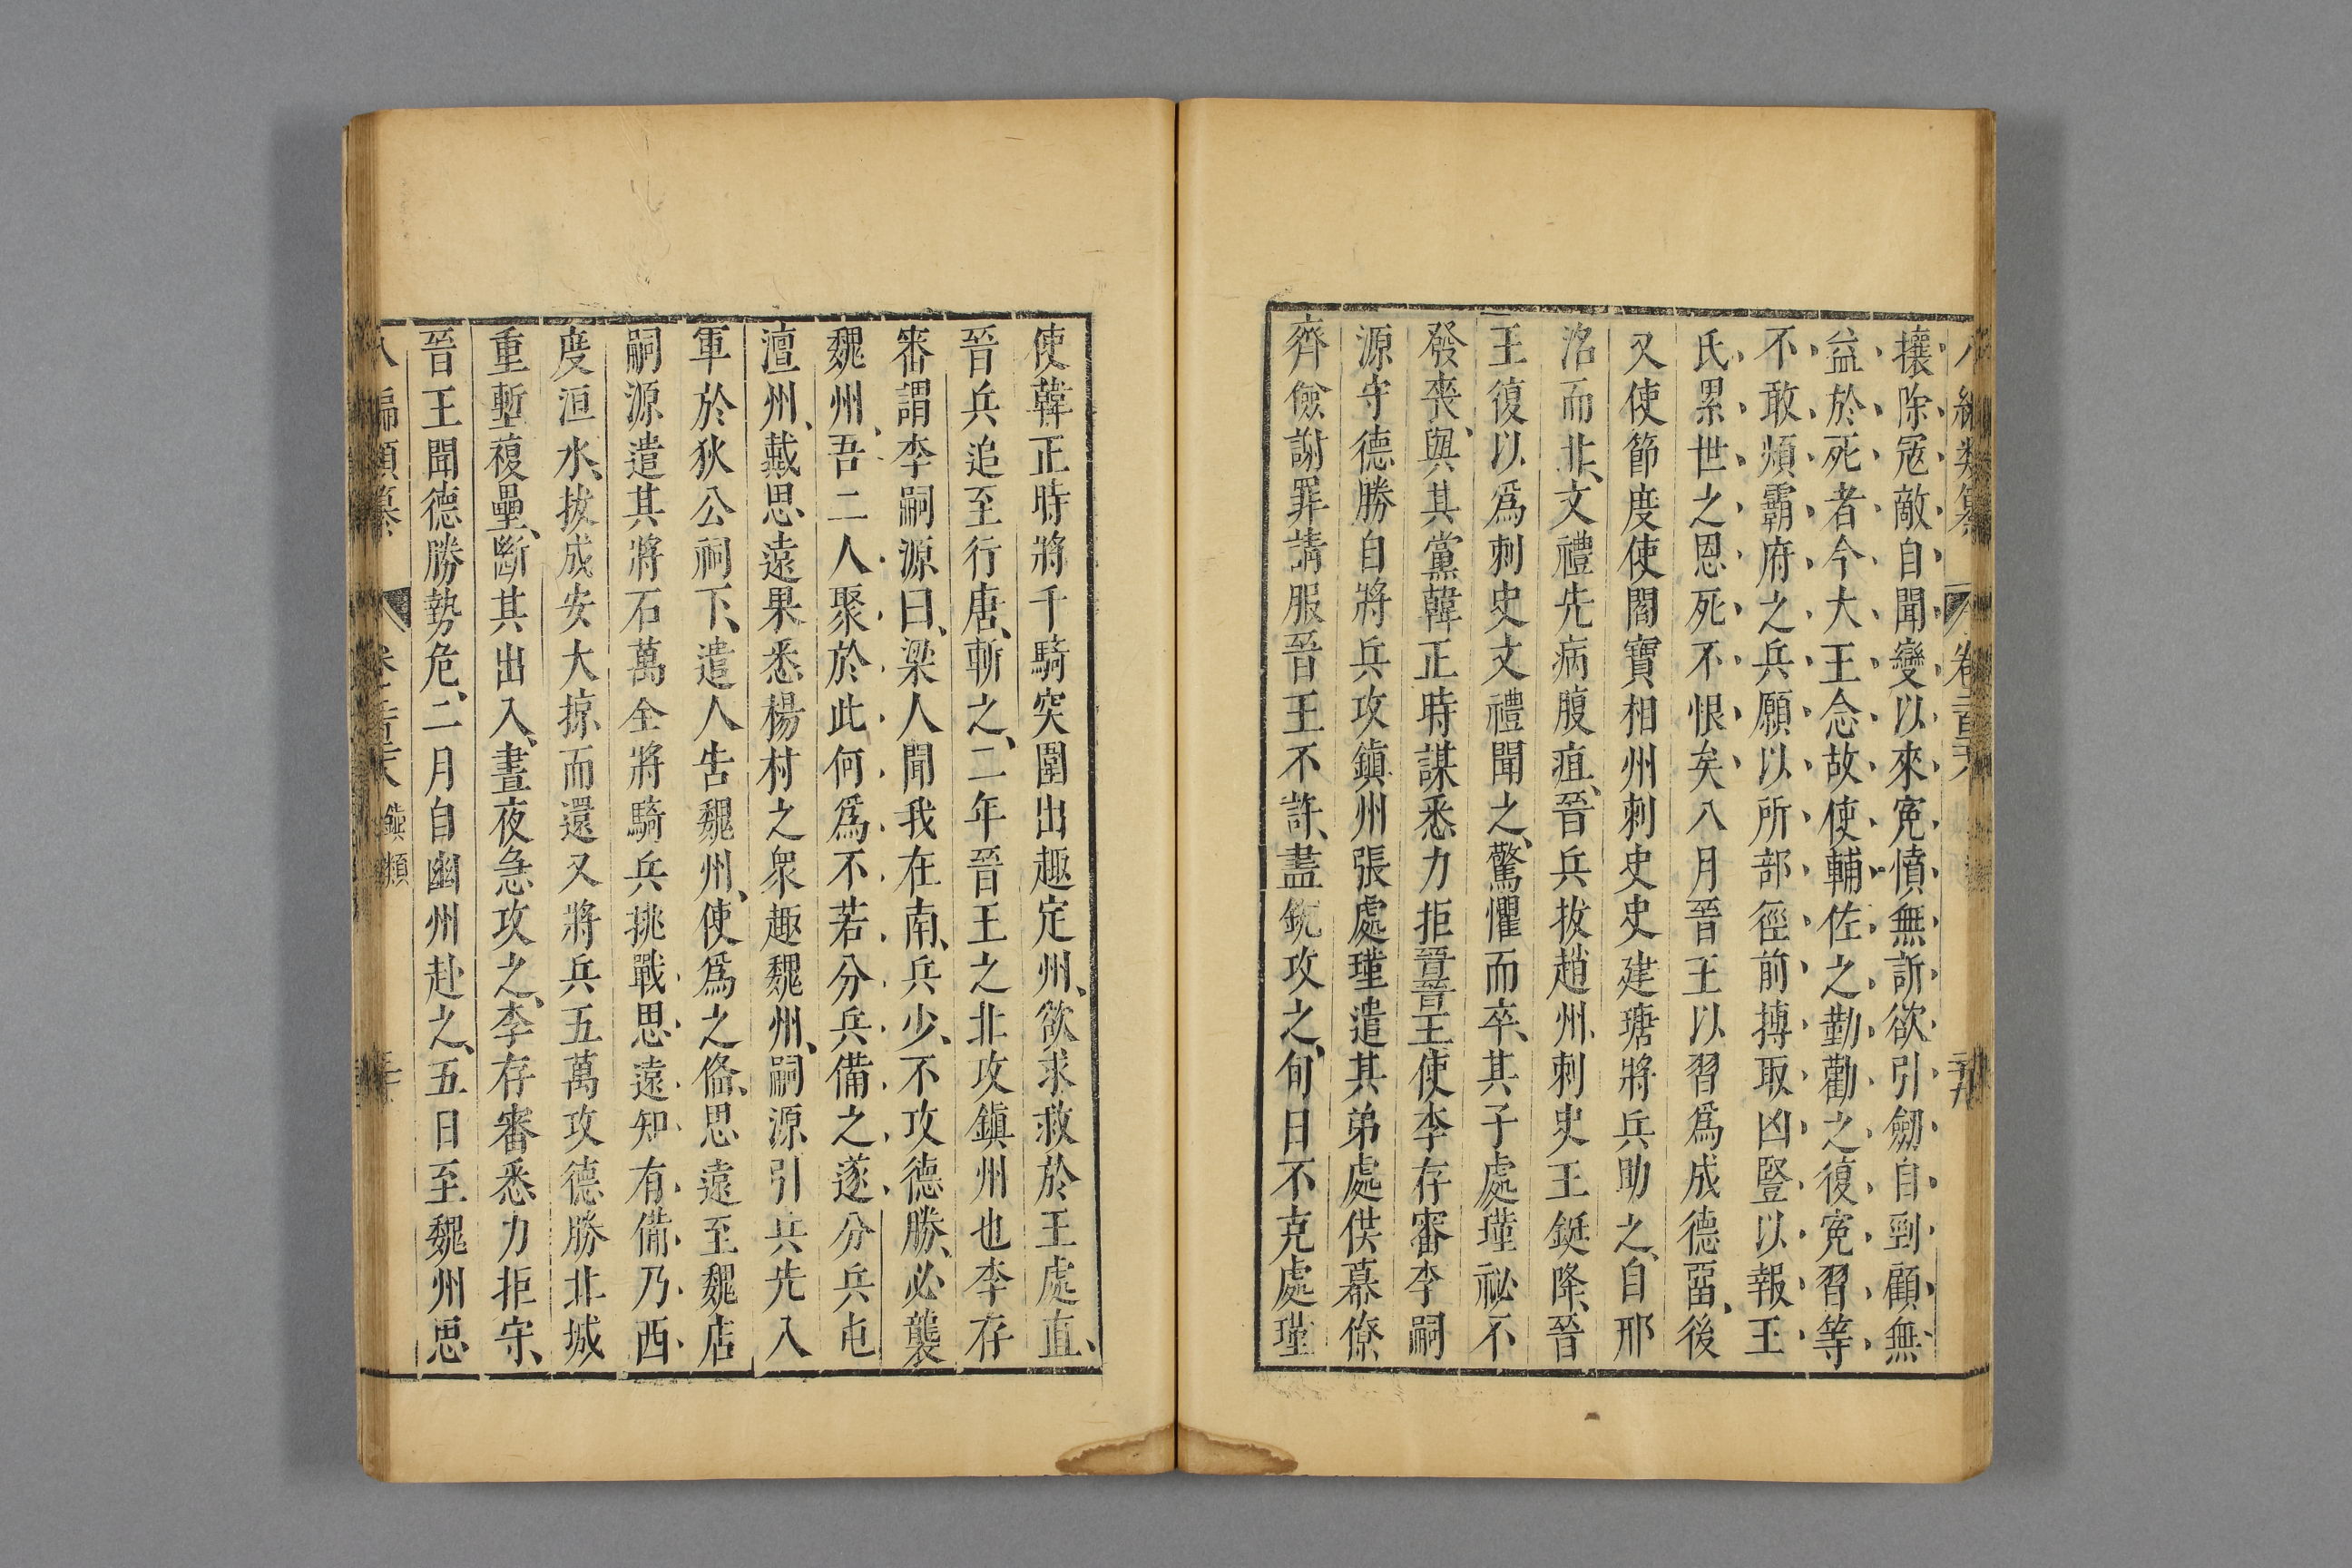 八編類纂 卷二百六 二十九
攘除冦敵自聞變以來寃憤無訴欲引劒自剄顧無
益於死者今大王念故使輔佐之勤勸之復寃習等
不敢煩霸府之兵願以所部徑前搏取凶豎以報王
氏累世之恩死不恨矣八月晉王以習爲成德畱後
又使節度使閻寶相州刺史史建瑭將兵助之自邢
洺而北文禮先病腹疽晉兵拔趙州刺史王鋋降晉
王復以爲刺史文禮聞之驚懼而卒其子處瑾祕不
發喪與其黨韓正時謀悉力拒晉晉王使李存審李嗣
源守德勝自將兵攻鎭州張處瑾遣其弟處供幕僚
齊儉謝罪請服晉王不許盡銳攻之旬日不克處瑾
使韓正時將千騎突圍出趣定州欲求救於王處直
晉兵追至行唐斬之二年晉王之北攻鎭州也李存
審謂李嗣源曰梁人聞我在南兵少不攻德勝必襲
魏州吾二人聚於此何爲不若分兵備之遂分兵屯
澶州戴思遠果悉楊村之衆趣魏州嗣源引兵先入
軍於狄公祠下遣人告魏州使爲之俻思遠至魏店
嗣源遣其將石萬全將騎兵挑戰思遠知有備乃西
度洹水拔成安大掠而還又將兵五萬攻德勝北城
重塹複壘斷其出入晝夜急攻之李存審悉力拒守
晉王聞德勝勢危二月自幽州赴之五日至魏州思
八編類纂 卷二百六 鎭類 三十